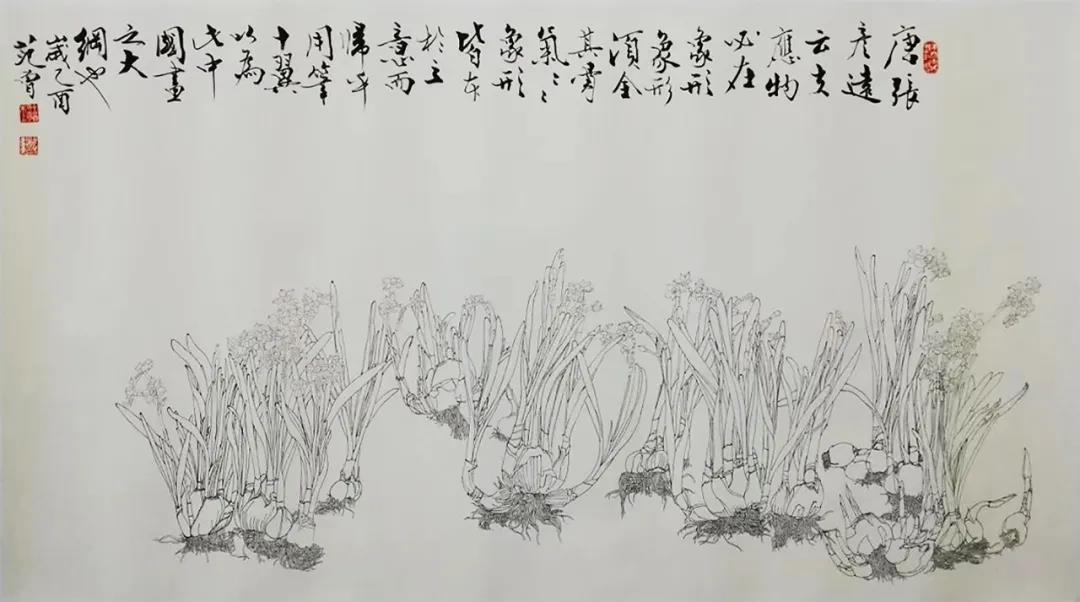 唐張
彥遠
云夫
應物
必在
象形
象形
須全
其骨
氣〻〻
象形
皆本
於立
意而
歸乎
用筆
十翼
以為
此中
國畫
之大
綱也
歲乙酉
范曾